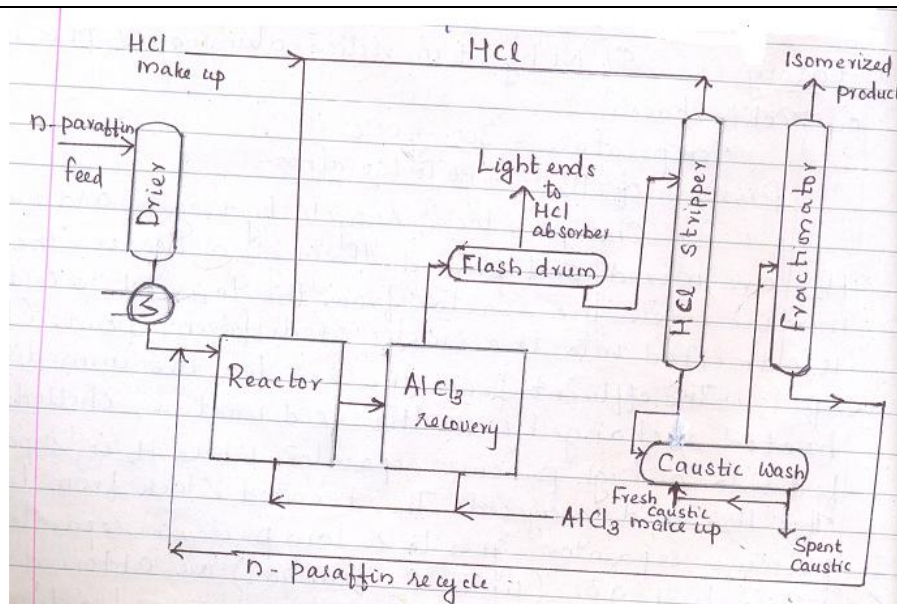 HCl
make up
HCl
Isomerized
product
n-paraffin
feed
Drier
Light ends
to
HCl
absorber
Flash drum
HCl stripper
Fractionator
Reactor
AlCl3
recovery
Caustic wash
Fresh
caustic
AlCl3 make up
Spent
Caustic
n-paraffin recycle